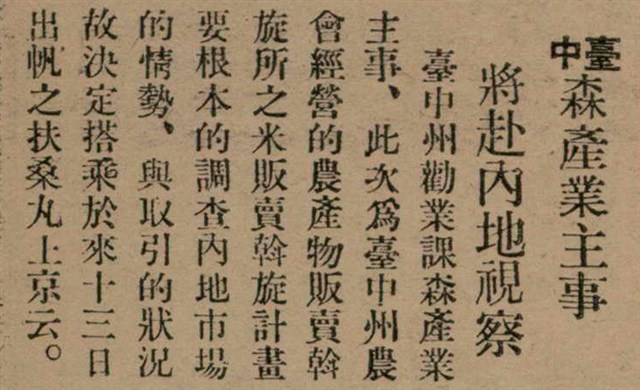 臺中
森產業主事
將赴內地視察
臺中州勸業課森產業
主事、此次爲臺中州農
會經營的農產物販賣斡
旋所之米販賣斡旋計畫
要根本的調查內地市場
的情勢、與取引的狀況
故決定搭乘於來十三日
出帆之扶桑丸上京云。